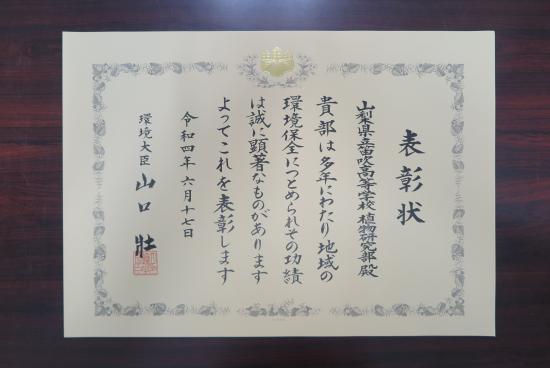 表彰状
山梨県立笛吹高等学校 植物研究部 殿
貴部は多年にわたり地域の
環境保全につとめられその功績
は誠に顕著なものがあります
よってこれを表彰します
令和四年六月十七日
環境大臣 山口 壯